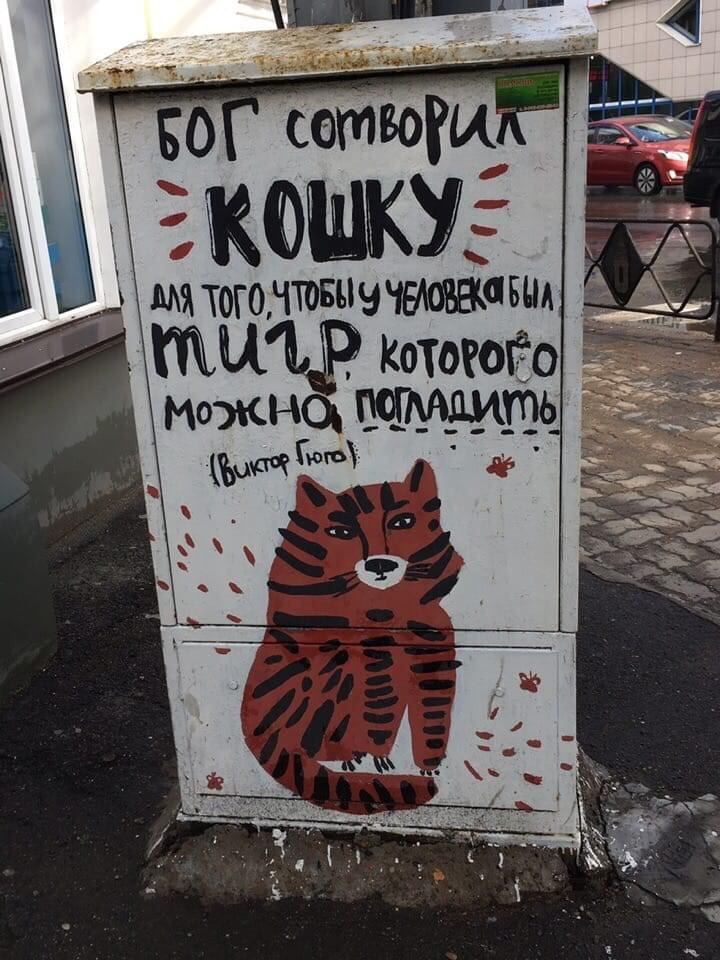 БОГ сотворил
КОШКУ
для того, чтобы у человека был
тигр, которого
можно погладить
(Виктор Гюго)